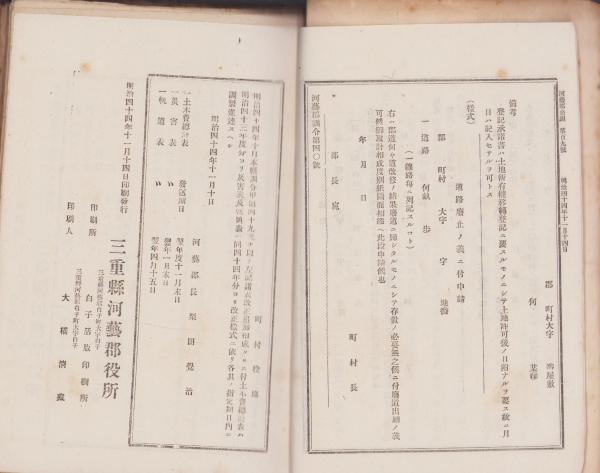 河藝郡公報 第百九號 明治四十四年十一月十四日
郡 町村大字
何 某
備考
登記承諾書ハ土地所有權移轉登記ニ要スルモノニシテ上地許可後ノ日附ナルヲ要ス故ニ月
日ハ記入セサルヲ可トス
(樣式)
道路廢止ノ義ニ付申請
郡 町村 大字 字 地傍
一道路 何畝 歩
(一線路每ニ列記スルコト)
右ハ郡道何々道改修ノ結果廢道ニ歸シタルモノニシテ存置ノ必要無之候ニ付廢道出願ノ義
可然御設計相成度別紙圖面相添ヘ此段申請候也
年 月 日
町 村 長
郡 長 宛
河藝郡訓令第四〇號
町 村 役 塲
明治四十四年十月本縣訓令甲第四十九號ヲ以テ
明治四十二年度分ヨリ災害表及軌道表ハ同四十四年分ヨリ改正樣式ニ依リ各其ノ指定期日內ニ
調製進達スヘシ
明治四十四年十一月十日
河藝郡長 栗田覺治
一土木費總計表 發送期日 翌年度十一月末日
一災害表 〃 翌年一月末日
一軌道表 〃 翌年四月十五日
明治四十四年十一月十四日印刷發行
三重縣河藝郡役所
三重縣河藝郡白子町大字白子
印刷所 白子活版印刷所
三重縣河藝郡白子町大字白子
印刷人 大橋